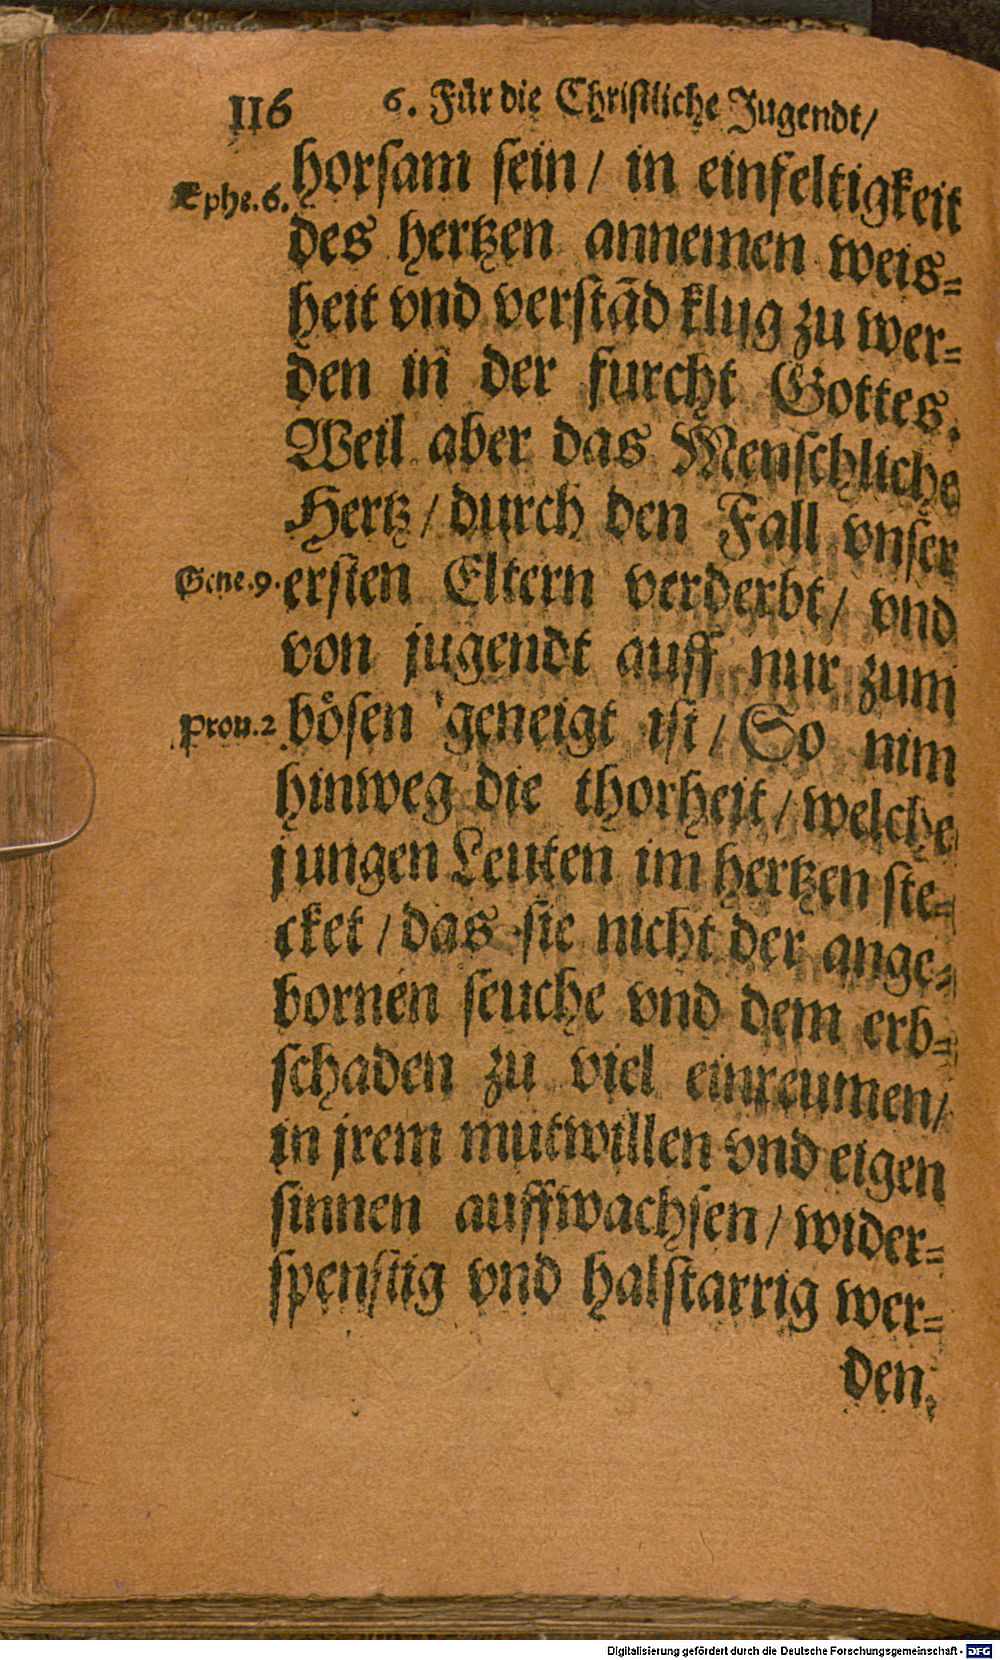 116 6. Für die Christliche Jugendt/
horsam sein/ in einfeltigkeit
Ephe. 6.
des hertzen annemen weis=
heit vnd verstād klug zu wer=
den in der furcht Gottes.
Weil aber das Menschliche
Hertz/ durch den Fall vnser
Gene. 9. ersten Eltern verderbt/ vnd
von jugendt auff nur zum
Prou. 2 bösen geneigt ist/ So nim
hinweg die thorheit/ welche
jungen Leuten im hertzen ste=
cket/ das sie nicht der ange=
bornen seuche vnd dem erb=
schaden zu viel einreumen/
in jrem mutwillen vnd eigen
sinnen auffwachsen/ wider=
spenstig vnd halstarrig wer=
den.
Digitalisierung gefördert durch die Deutsche Forschungsgemeinschaft - DFG